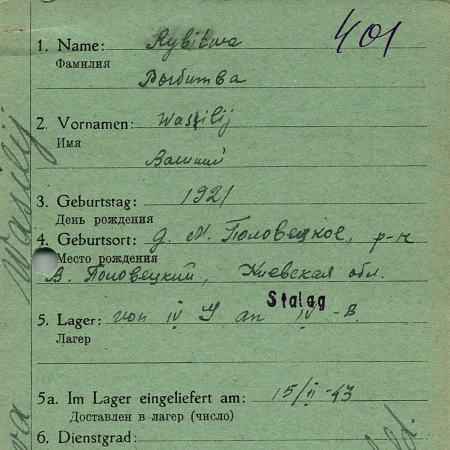 401
1. Name: Rybitwa
Фамилия
Рыбитва
2. Vornamen: Wassilij
Имя
Василий
3. Geburtstag: 1921
День рождения
4. Geburtsort: д. М. Половецкое, р-н
Место рождения
В. Половецкий, Киевская обл.
Stalag
5. Lager: von IV G an IV -B.
Лагер
5a. Im Lager eingeliefert am: 15/II-43
Доставлен в лагер (число)
6. Dienstgrad:
Wasilij